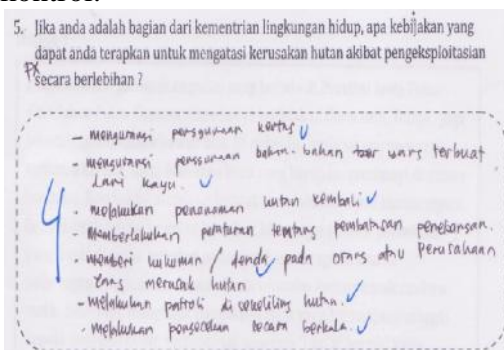 kontrol.
5. Jika anda adalah bagian dari kementrian lingkungan hidup, apa kebijakan yang
dapat anda terapkan untuk mengatasi kerusakan hutan akibat pengeksploitasian
secara berlebihan ?
- mengurangi penggunaan kertas
- mengurangi penggunaan bahan-bahan yang terbuat
dari kayu.
- melakukan penanaman hutan kembali
- memberlakukan peraturan tentang pembatasan penebangan.
- memberi hukuman / denda pada orang atau perusahaan
yang merusak hutan
- melakukan patroli di sekeliling hutan.
- melakukan pengecekan secara berkala.
4